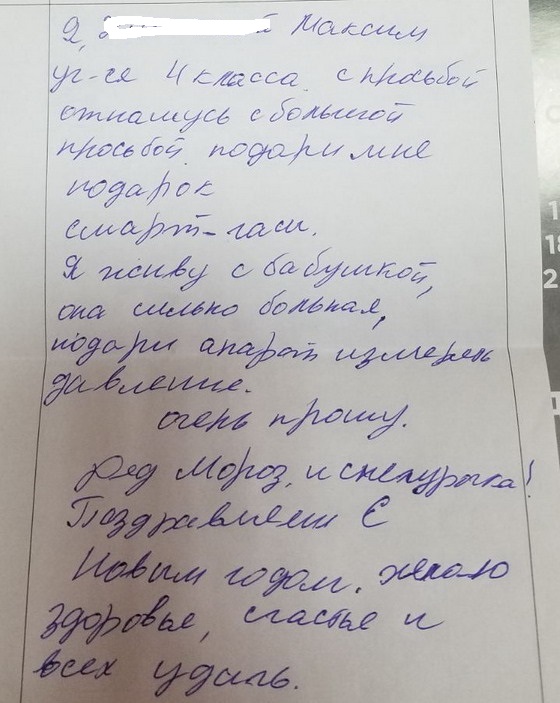 Я, й Максим
уг-ся 4 класса. с просьбой
с большой
просьбой. подари мне
подарок
смарт-часы.
Я живу с бабушкой,
она сильно больная,
подари апарат измерять
давление.
очень прошу.
Дед Мороз, и снегурочка!
Поздравляем С
Новым годом. желаю
здоровье, счастье и
всех удачь.
1
18
2